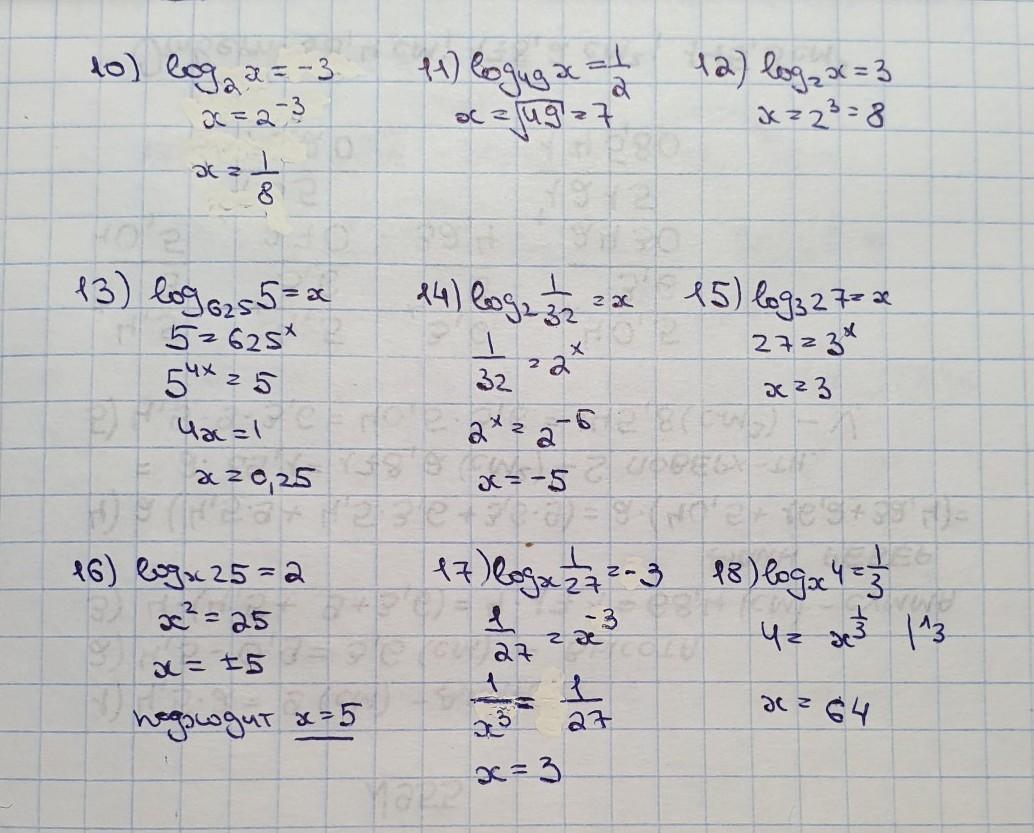 10) log₂ x = -3
x = 2⁻³
x = 1/8
11) log₄₉ x = 1/2
x = √49 = 7
12) log₂ x = 3
x = 2³ = 8
13) log₆₂₅ 5 = x
5 = 625ˣ
5⁴ˣ = 5
4x = 1
x = 0,25
14) log₂ 1/32 = x
1/32 = 2ˣ
2ˣ = 2⁻⁵
x = -5
15) log₃ 27 = x
27 = 3ˣ
x = 3
16) logₓ 25 = 2
x² = 25
x = ±5
подходит x = 5
17) logₓ 1/27 = -3
1/27 = x⁻³
1/x³ = 1/27
x = 3
18) logₓ 4 = 1/3
4 = x^(1/3) |^3
x = 64